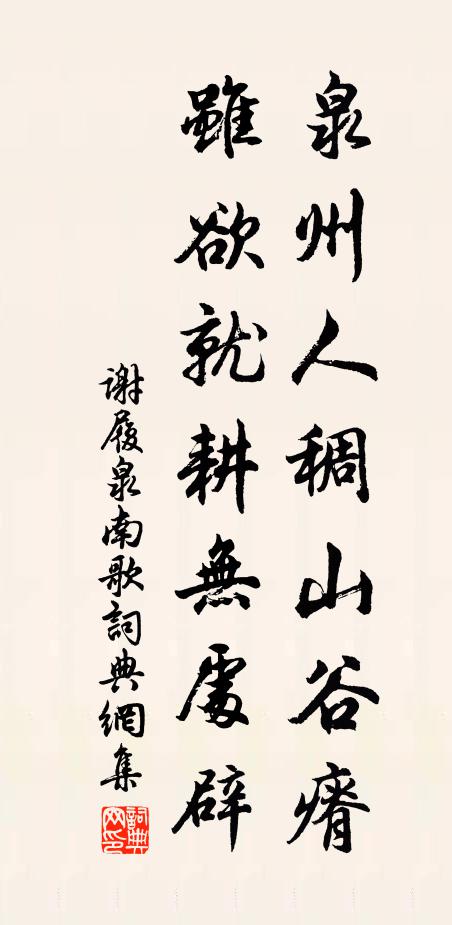 泉州人稠山谷瘠
雖欲就耕無處辟
謝履泉南歌詞典網集
詞典網印